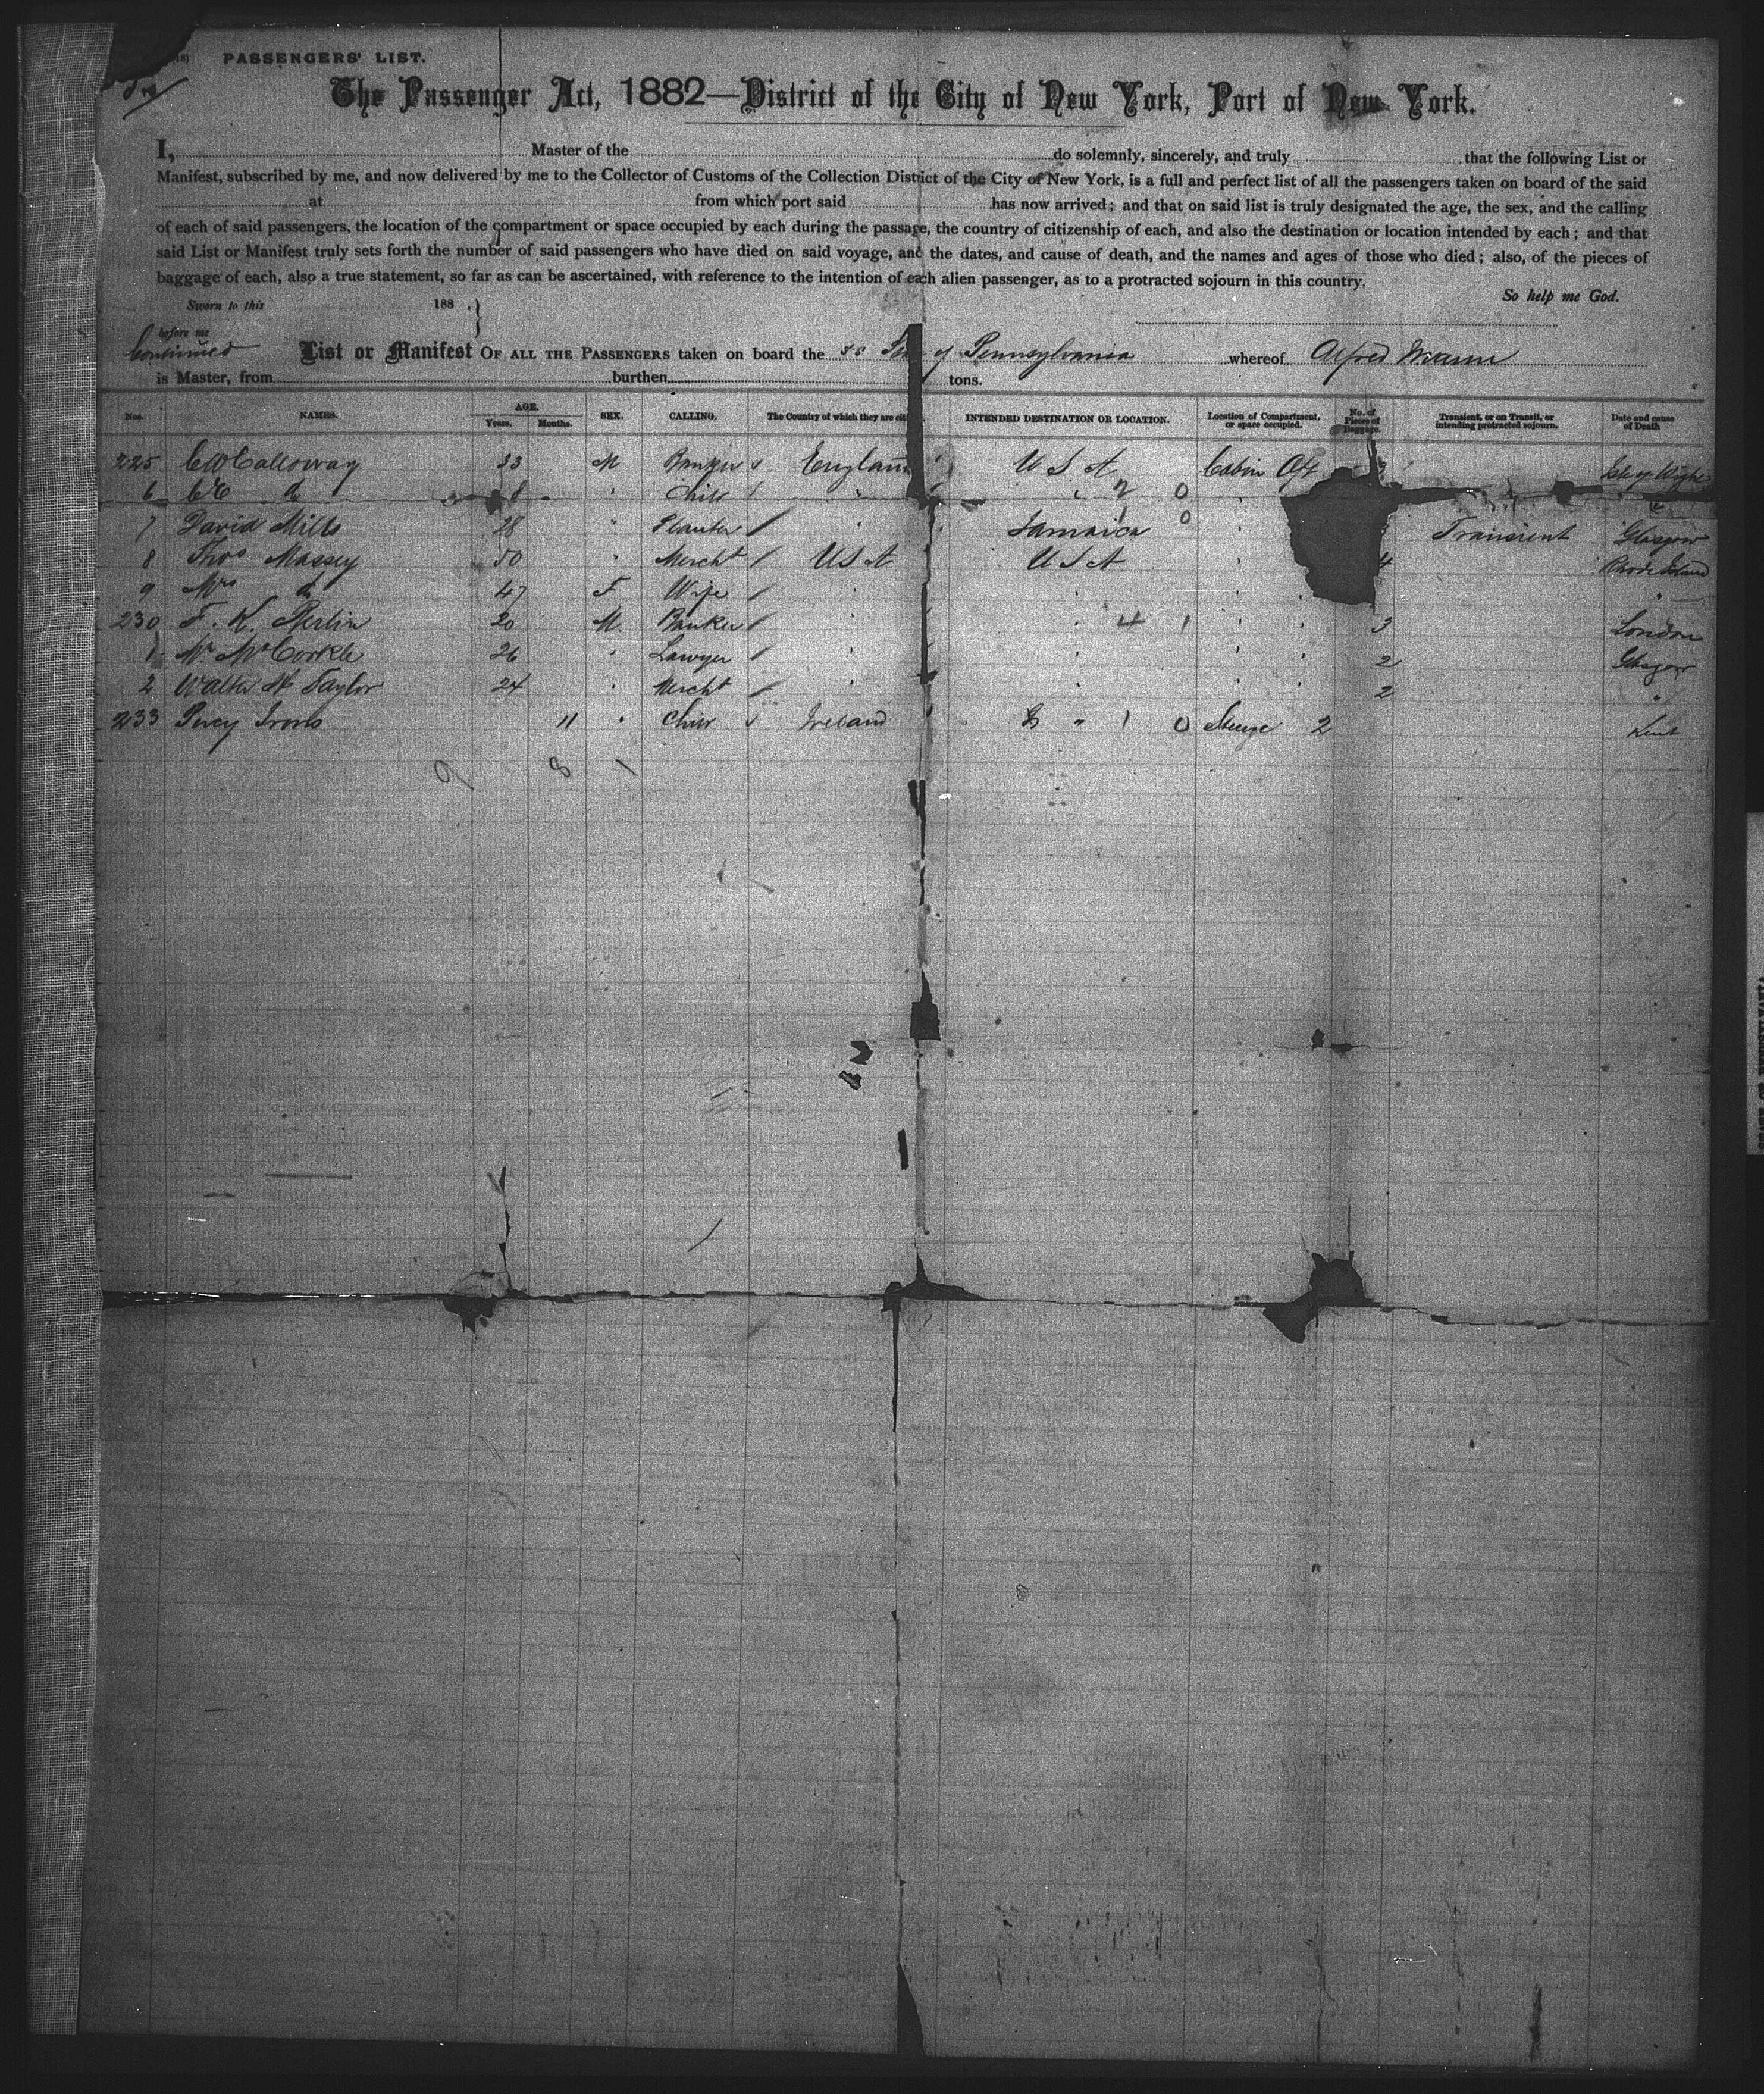 PASSENGERS' LIST.
The Passenger Act, 1882—District of the City of New York, Port of New York.
I, Master of the do solemnly, sincerely, and truly that the following List or
Manifest, subscribed by me, and now delivered by me to the Collector of Customs of the Collection District of the City of New York, is a full and perfect list of all the passengers taken on board of the said
at from which port said has now arrived; and that on said list is truly designated the age, the sex, and the calling
of each of said passengers, the location of the compartment or space occupied by each during the passage, the country of citizenship of each, and also the destination or location intended by each; and that
said List or Manifest truly sets forth the number of said passengers who have died on said voyage, and the dates, and cause of death, and the names and ages of those who died; also, of the pieces of
baggage of each, also a true statement, so far as can be ascertained, with reference to the intention of each alien passenger, as to a protracted sojourn in this country.
So help me God.
Sworn to this 188
before me
Continued List or Manifest OF ALL THE PASSENGERS taken on board the SS of Pennsylvania whereof Alfred
is Master, from burthen tons.
Nos. NAMES. AGE. Years. Months. SEX. CALLING. The Country of which they are INTENDED DESTINATION OR LOCATION. Location of Compartment, or space occupied. No. of Pieces of Baggage. Transient, or on Transit, or intending protracted sojourn. Date and cause of Death
225 C W Calloway 33 M Banker England U S A Cabin Aft 3 Isle of Wight
6 CE do 8 " Child " " 2 0
7 David Mills 28 " Planter " Jamaica 1 0 " Transient Glasgow
8 Thos Massey 50 " Mercht U S A U S A " 4 Rhode Island
9 Mrs do 47 F Wife " " " "
230 F. K. Perlin 20 M. Banker " " 4 1 " " 3 London
1 Mr McCorkle 26 " Lawyer " " " " 2 Glasgow
2 Walter W Taylor 24 " Mercht " " " 2 "
233 Percy Irons 11 " Child Ireland " 1 0 Steerge 2 Kent
9 8 1